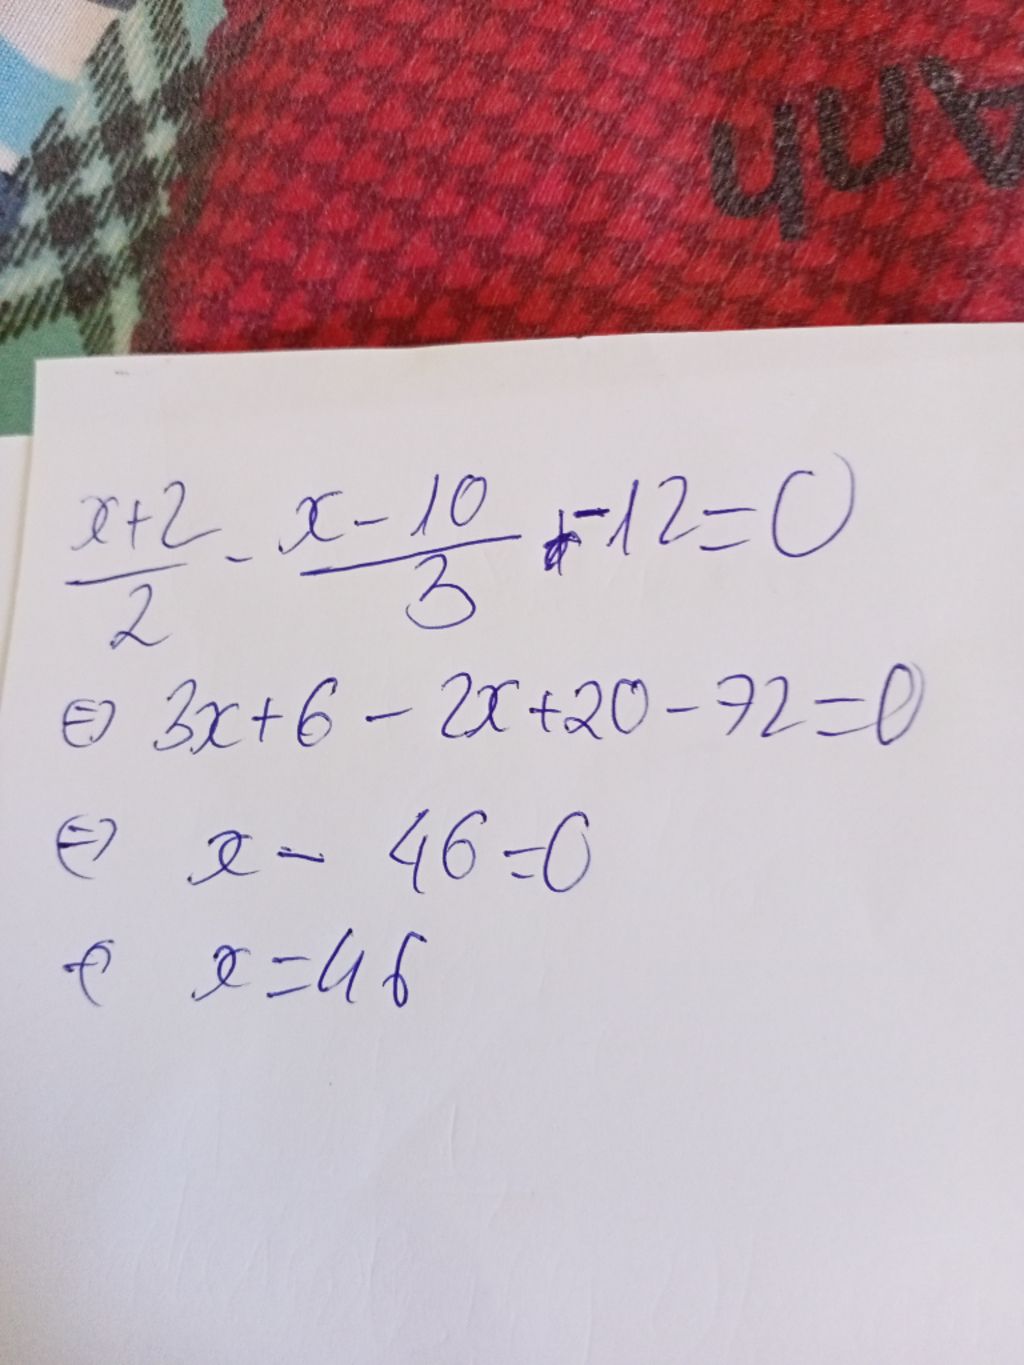 Anh
(x+2)/2 - (x-10)/3 -12=0
⇔ 3x+6-2x+20-72=0
⇔ x-46=0
x=46